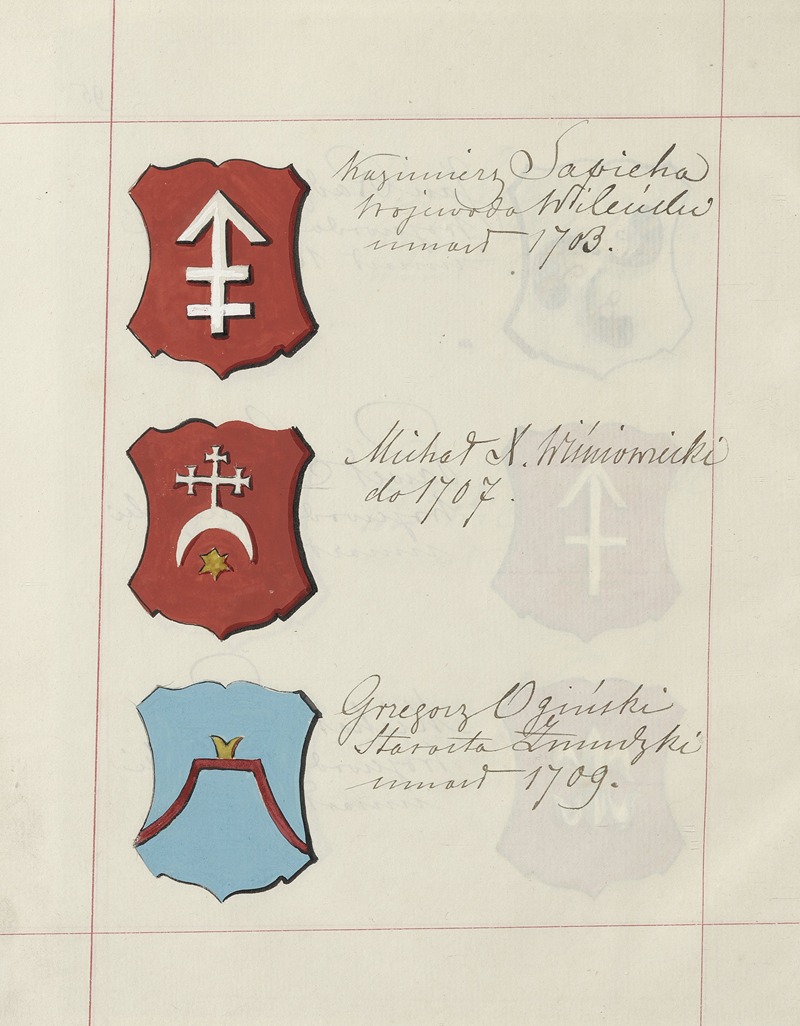 Kazimierz Sapieha
Wojewoda Wileński
umarł 1703.
Michał X. Wiśniowiecki
do 1707.
Grzegorz Ogiński
Starosta Żmudzki
umarł 1709.